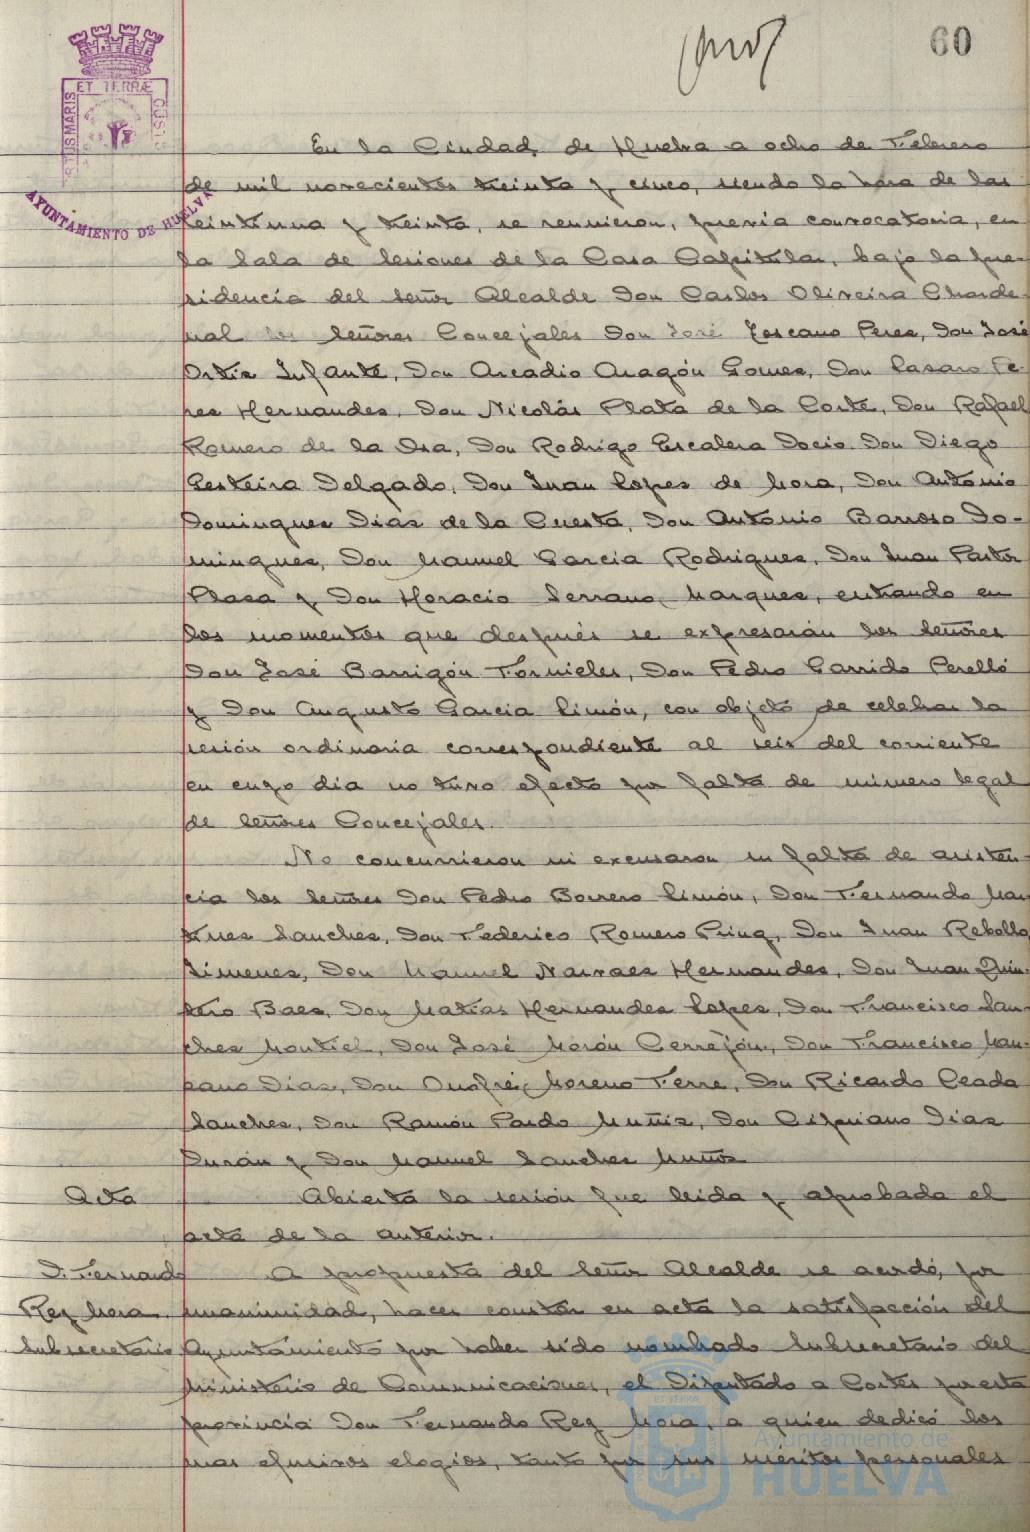 60
ET TERRÆ
PORTUS MARIS
CUSTO
AYUNTAMIENTO DE HUELVA
En la Ciudad de Huelva a ocho de Febrero
de mil novecientos treinta y cinco, siendo la hora de las
veintiuna y treinta, se reunieron, previa convocatoria, en
la Sala de Sesiones de la Casa Capitular, bajo la pre-
sidencia del señor Alcalde Don Carlos Oliveira Charde-
nal los Señores Concejales Don José Toscano Peres, Don José
Ortis Infante, Don Arcadio Aragón Gomes, Don Lasaro Pe-
res Hernandes, Don Nicolás Plata de la Corte, Don Rafael
Romero de la Osa, Don Rodrigo Escalera Docio, Don Diego
Gesteira Delgado, Don Juan Lopes de Mora, Don Antonio
Domingues Dias de la Cuesta, Don Antonio Barroso Do-
mingues, Don Manuel Garcia Rodrigues, Don Juan Pastor
Plasa y Don Horacio Serrano Marques, entrando en
los momentos que después se expresarán los Señores
Don José Barrigón Fornieles, Don Pedro Garrido Perelló
y Don Augusto Garcia Limón, con objeto de celebrar la
sesión ordinaria correspondiente al seis del corriente
en cuyo dia no tuvo efecto por falta de número legal
de Señores Concejales.
No concurrieron ni excusaron su falta de asisten-
cia los Señores Don Pedro Borrero Limón, Don Fernando Mar-
tines Sanches, Don Federico Romero Pring, Don Juan Rebollo
Jimenes, Don Manuel Narvaes Hernandes, Don Juan Quin-
tero Baes, Don Matías Hernandes Lopes, Don Francisco San-
ches Montiel, Don José Morón Cerrejón, Don Francisco Man-
sano Dias, Don Onofre Moreno Ferre, Don Ricardo Ceada
Sanches, Don Ramón Pardo Muñis, Don Cipriano Dias
Durán y Don Manuel Sanches Muños
Acta
Abierta la sesión fue leida y aprobada el
acta de la anterior.
D. Fernando
Rey Mora.
Subsecretario
A propuesta del Señor Alcalde se acordó, por
unanimidad, hacer constar en acta la satisfacción del
Ayuntamiento por haber sido nombrado Subsecretario del
Ministerio de Comunicaciones, el Diputado a Cortes por esta
provincia Don Fernando Rey Mora, a quien dedicó los
mas efusivos elogios, tanto por sus méritos personales
Ayuntamiento de
HUELVA